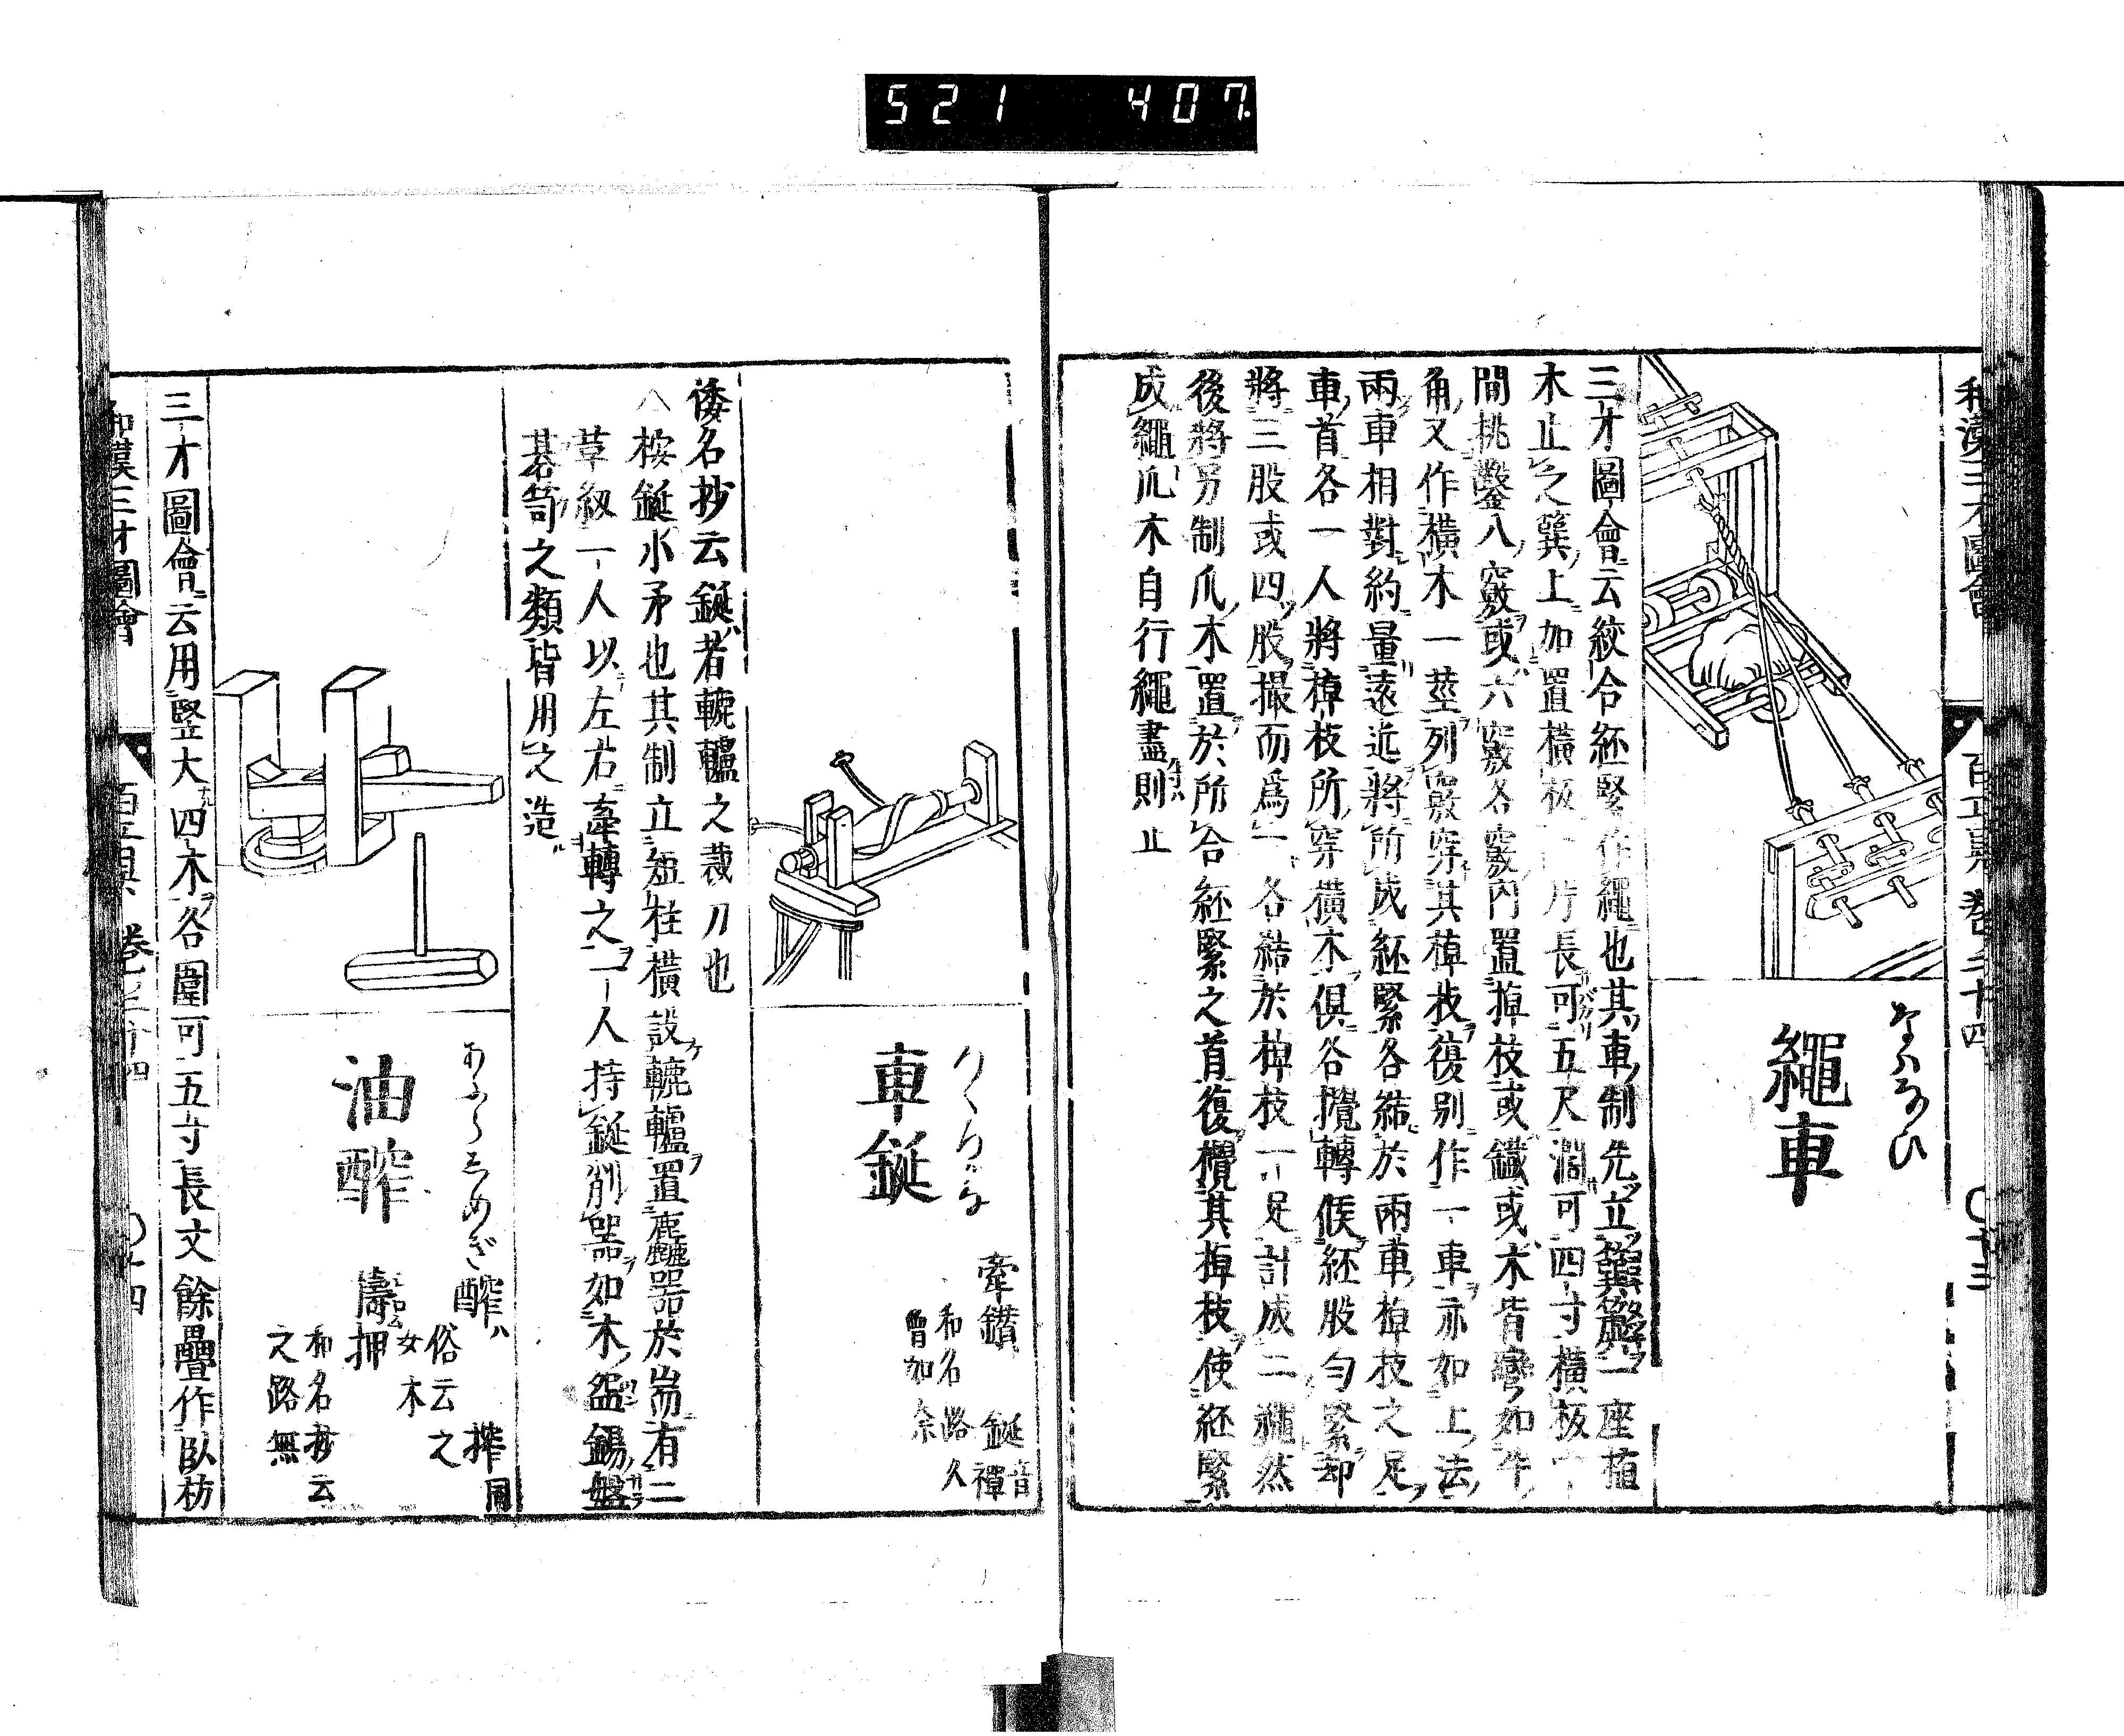 521 407.
和漢三才圖會 百工具 卷二十四 〇十三
なはなひ
繩車
三才圖會云絞合紝緊作繩也其車制先立簨簴一座植
木止之簨上加置橫板一片長可五尺濶可四寸橫板中
間挑鑿八竅或六竅各竅內置掉枝或鐵或木皆彎如牛
角又作橫木一莖列竅穿其掉枝復別作一車亦如上法
兩車相對約量遠近將所成紝緊各結於兩車掉枝之足
車首各一人將掉枝所穿橫木俱各攪轉候紝股勻緊却
將三股或四股撮而爲一各結於掉枝一足計成二繩然
後將另制爪木置於所合紝緊之首復攪其掉枝使紝緊
成繩爪木自行繩盡則止
車鋋
ろくろがな
牽鑚 鋋音禪
和名路久
曾加奈
倭名抄云鋋者轆轤之裁刀也
△按鋋小矛也其制立短柱橫設轆轤置麤器於耑有二
草紉一人以左右牽轉之一人持鋋削器如木盌鍚盤
碁笥之類皆用之造
油醡
あふらしめぎ
醡 搾同
俗云之
女木
壽押
和名抄云
之路無
三才圖會云用堅大四木各圍可五寸長丈餘疊作臥枋
和漢三才圖會 百工具 卷二十四 〇十四